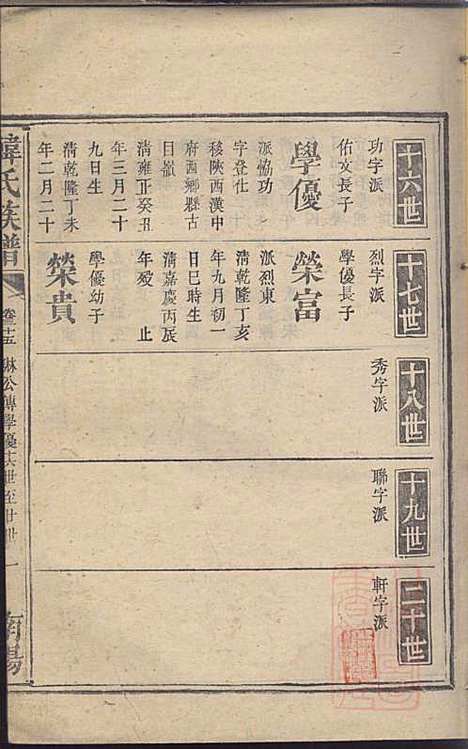 十六世
功字派
佑文長子
學優
派協功
字登仕
移陝西漢中
府西鄉縣古
日嶺
清雍正癸丑
年三月二十
九日生
清乾隆丁未
年二月二十
十七世
烈字派
學優長子
榮富
派烈東
清乾隆丁亥
年九月初一
日巳時生
清嘉慶丙辰
年歿 止
學優幼子
榮貴
十八世
秀字派
十九世
聯字派
二十世
軒字派
韓氏族譜
卷十五
琳公傳學優十六世至廿世 一
南陽